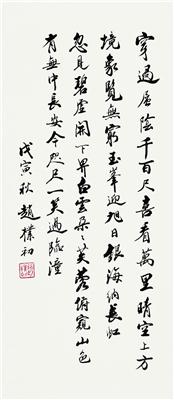 穿過層陰千百尺喜看萬里晴空上方
境象覽無窮玉峯迎旭日銀海納長虹
忽見碧虛開下界白雲朵々芙蓉俯窺山色
有無中長安令咫尺一笑過臨潼
戊寅秋 趙樸初